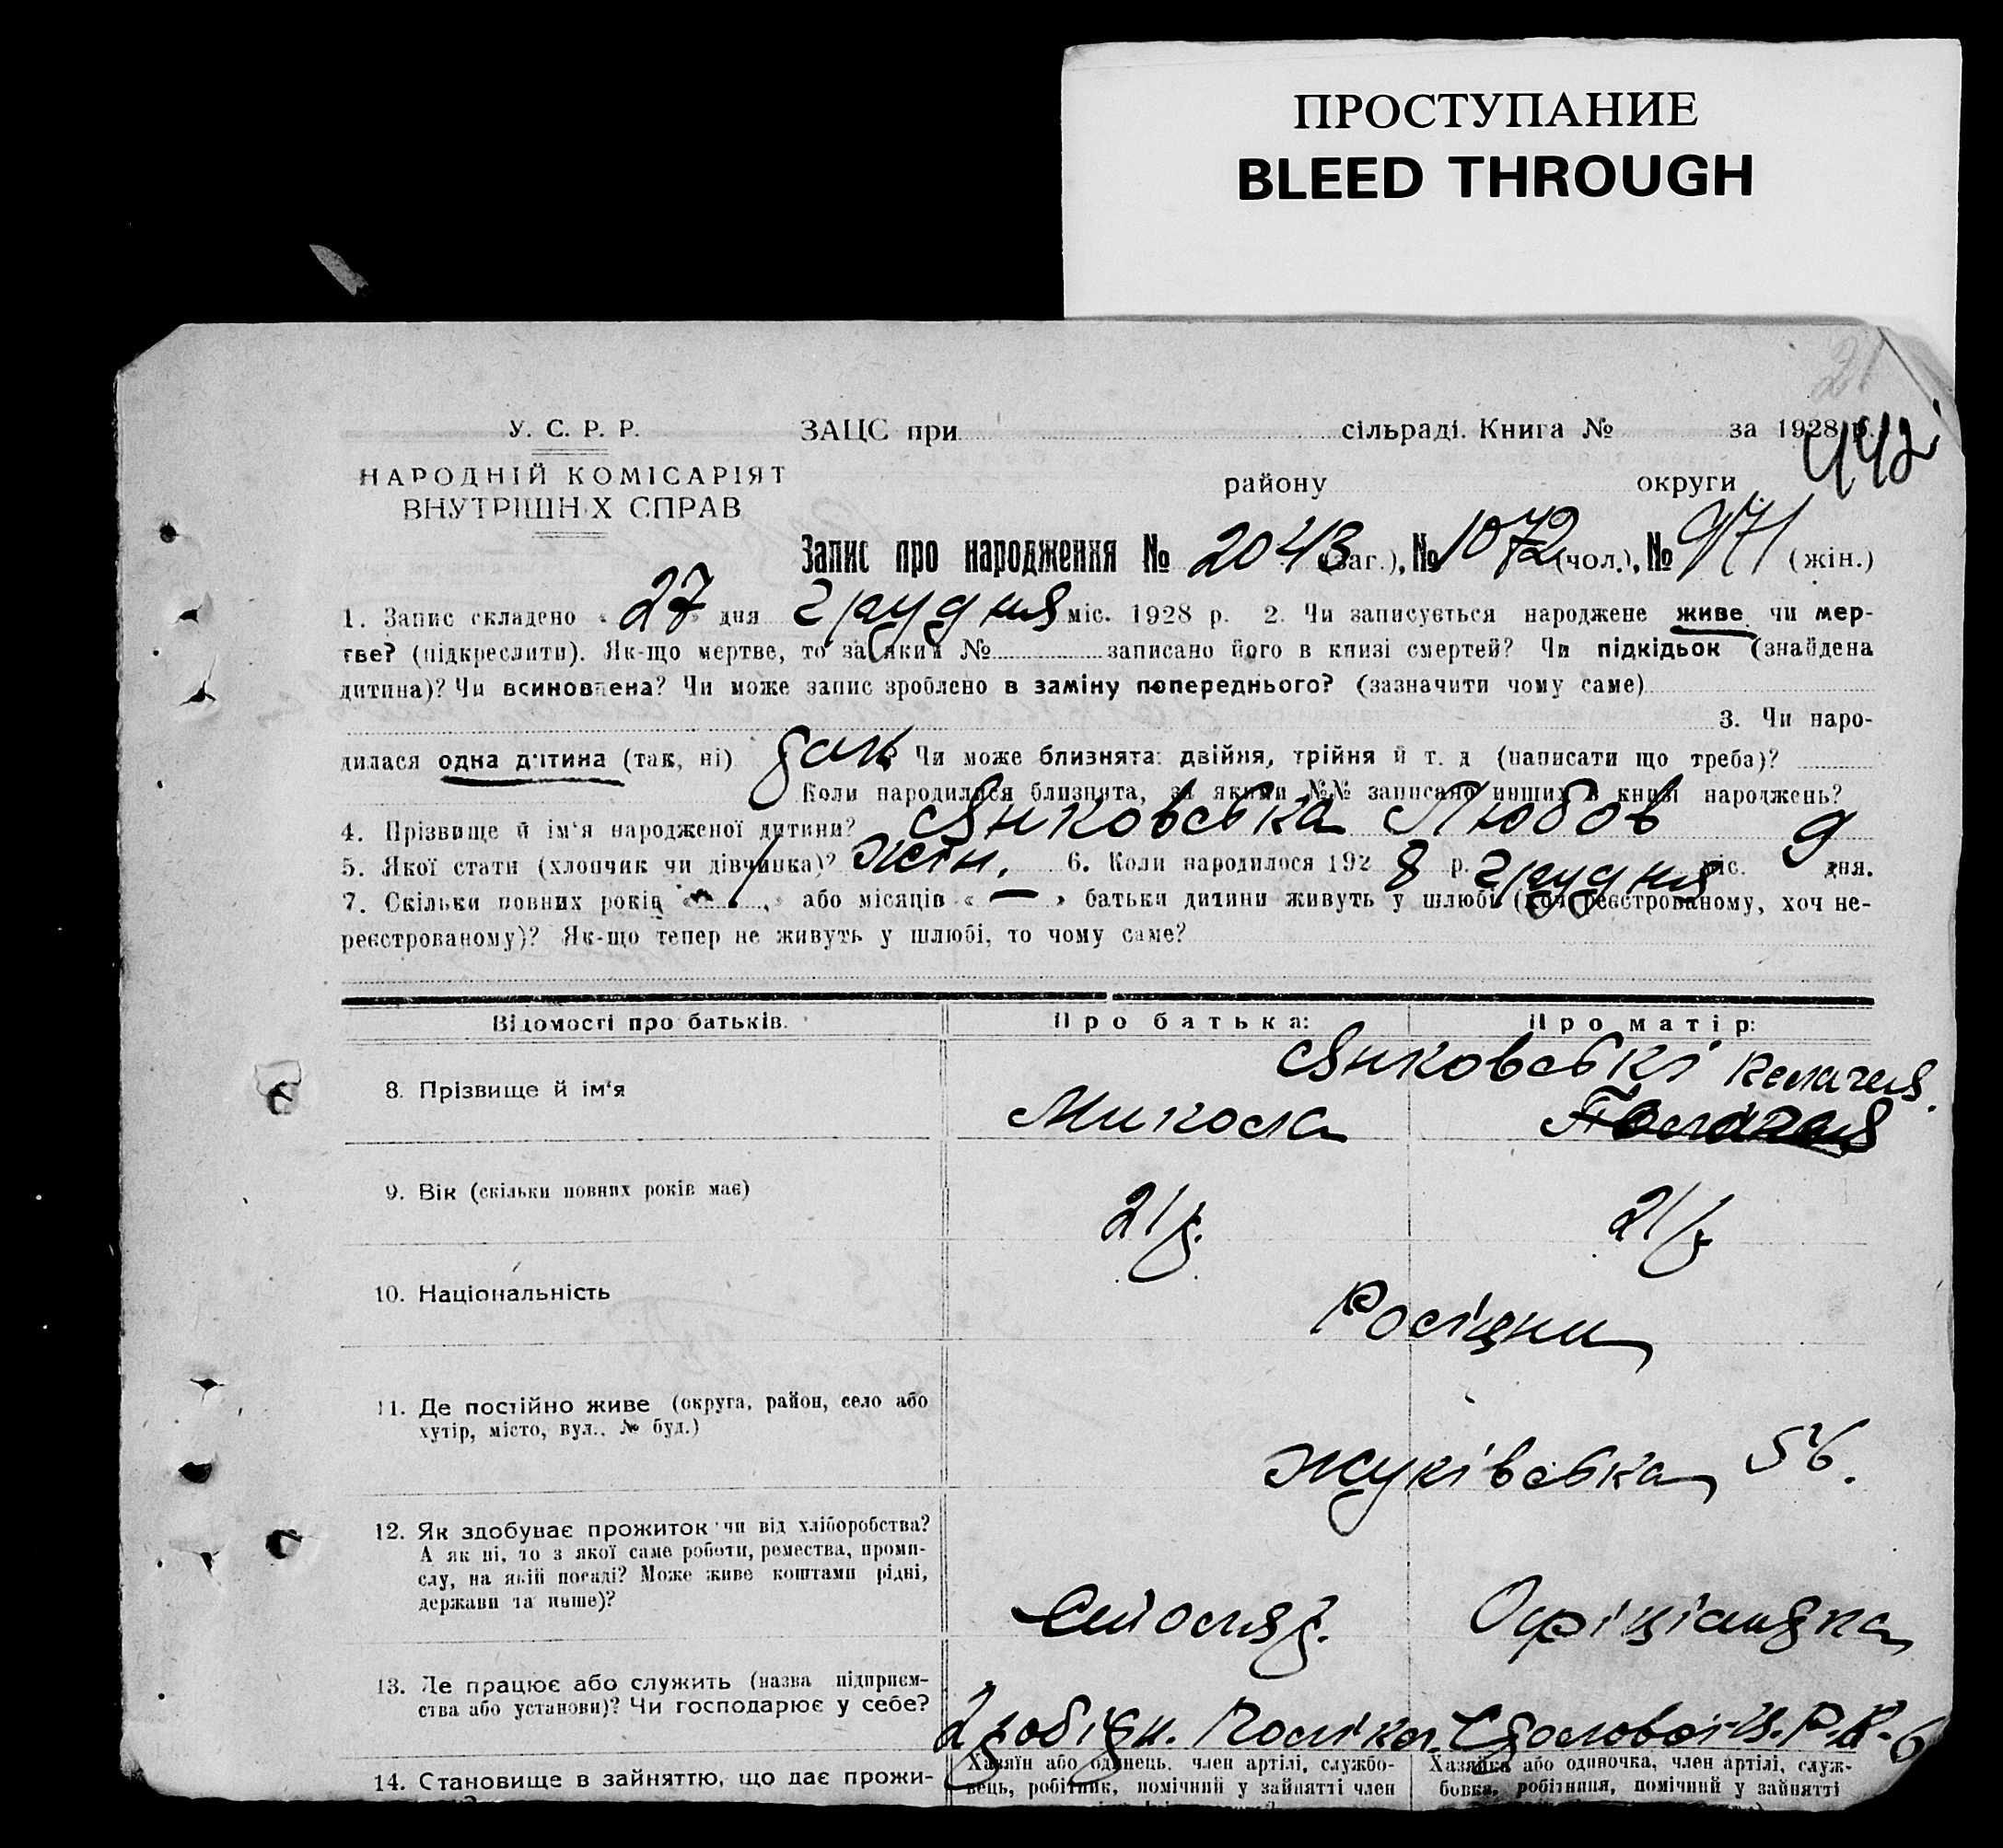 ПРОСТУПАНИЕ
BLEED THROUGH
21
У. С. Р. Р.
НАРОДНІЙ КОМІСАРІЯТ
ВНУТРІШНІХ СПРАВ
ЗАЦС при сільраді. Книга № за 1928 р.
442
району округи
Запис про народження № 2043 (заг.), № 1072 (чол.), № 971 (жін.)
1. Запис складено « 27 » дня грудня міс. 1928 р. 2. Чи записується народжене живе чи мер-
тве? (підкреслити). Як-що мертве, то за яким № записано його в книзі смертей? Чи підкідьок (знайдена
дитина)? Чи всиновлена? Чи може запис зроблено в заміну попереднього? (зазначити чому саме)
3. Чи наро-
дилася одна дитина (так, ні) Чи може близнята: двійня, трійня й т. д (написати що треба)?
Коли народилися близнята, за якими №№ записано инших в книзі народжень?
4. Прізвище й ім'я народженої дитини? Янковська Любов
5. Якої стати (хлопчик чи дівчинка)? жін. 6. Коли народилося 1928 р. грудня міс. 9 дня.
7. Скільки повних років « 1 » або місяців « — » батьки дитини живуть у шлюбі (хоч реєстрованому, хоч не-
реєстрованому)? Як-що тепер не живуть у шлюбі, то чому саме?
Відомості про батьків. Про батька: Про матір:
Янковські
8. Прізвище й ім'я Микола Пелагея
9. Вік (скільки повних років має) 21 р. 21 р
10. Національність Росіяни
11. Де постійно живе (округа, район, село або
хутір, місто, вул., № буд.)
Жуківська 56.
12. Як здобуває прожиток чи від хліборобства?
А як ні, то з якої саме роботи, ремества, проми-
слу, на якій посаді? Може живе коштами рідні,
держави та инше)?
Столяр. Офіціантка
13. Де працює або служить (назва підприєм-
ства або установи)? Чи господарює у себе?
14. Становище в зайняттю, що дає прожи-
Хазяїн або одинець, член артілі, службо-
вець, робітник, помічний у зайнятті член
Хазяйка або одиночка, член артілі, служ-
бовка, робітниця, помічний у зайнятті